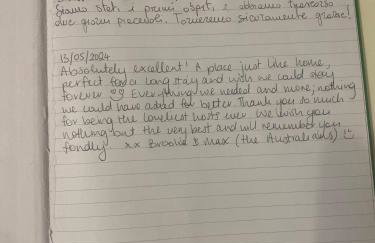 Siamo stati i primi ospiti, e abbiamo trascorso
due giorni piacevoli. Torneremo sicuramente grazie!
13/05/2024
Absolutely excellent! A place just like home,
perfect for a long stay and wish we could stay
forever Everything we needed and more, nothing
we could have asked for better. Thank you so much
for being the loveliest hosts ever. We wish you
nothing but the very best and will remember you
fondly xx Brooke & Max (the Australians)